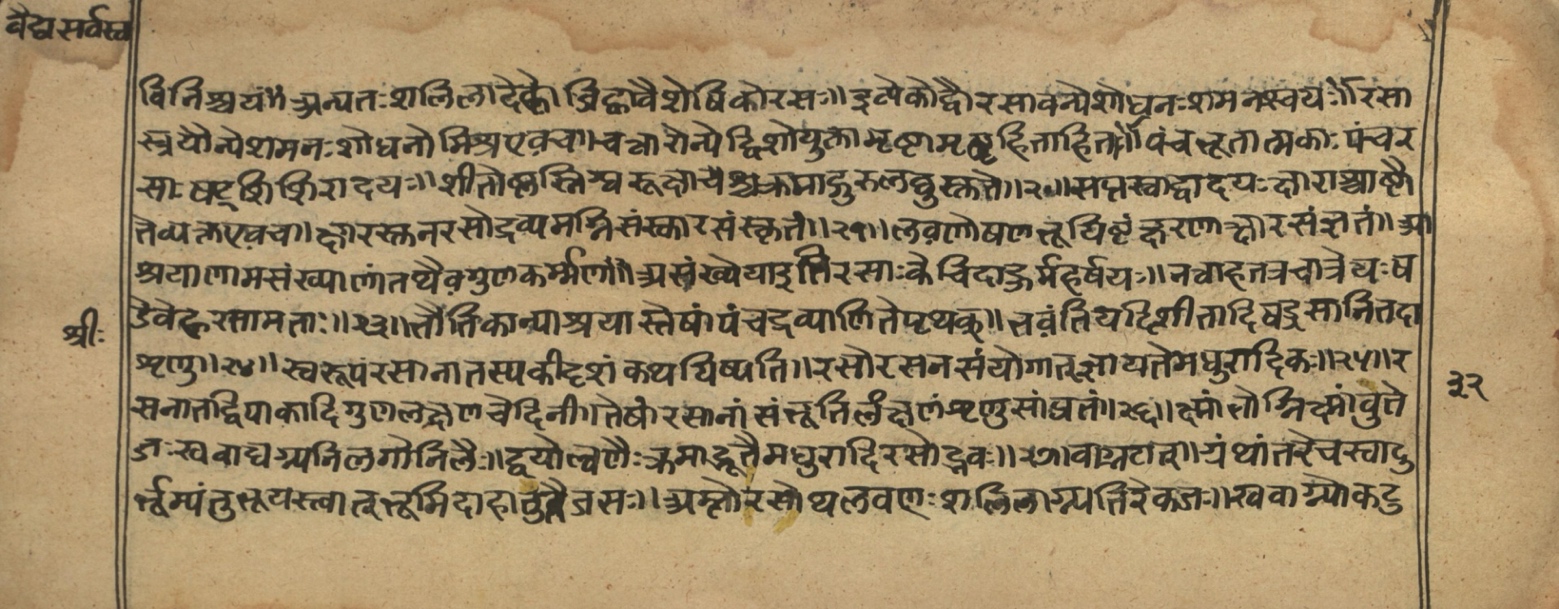 वैद्यसर्वस्व
विनिश्चयं॥ अन्यतः शलिलादेको जिह्वावैशेषिको रसः॥ इत्येको द्वौ रसावन्ये शोधनः शमनस्त्वयं॥ रसा
स्त्रयोन्ये शमनः शोधनो मिश्र एव च॥ चत्वारोन्ये द्विशो युक्ता मृष्टामृष्ट हिताहिताः॥ पंचभूतात्मकाः पंच र
साः षट् शिशिरादयः॥ शीतोष्णस्निग्धरूक्षा ये श्च क्रमाद्गुरुलघुस्कृते॥२०॥ सप्त स्वाद्वादयः क्षाराश्चाष्टौ
तेव्यक्त एव च॥ क्षारस्तु न रसो द्रव्यमग्निसंस्कारसंस्कृतं॥२१॥ लवणोषणभूयिष्टं क्षरणात् क्षारसंज्ञतं॥ आ
श्रयाणामसंख्याणां तथैव गुणकर्म्मणां॥ असंख्येया इति रसाः केचिदाहुर्महर्षयः॥ नवाह तत्र चात्रेयः ष
डेवेह रसा मताः॥२३॥ भौतिकान्याश्रयास्तेषां पंचद्रव्याणि ते पृथक्॥ भवंति यदि शीतादि षड्रसानि तदा
श्रीः
शृणु॥२४॥ स्वरूपं रसानां तस्य कीदृशं कथयिष्यति॥ रसो रसनसंयोगात् ज्ञायते मधुरादिकः॥२५॥ र
३२
सनात्तद्विपाकादिगुणलक्षण चेदिनी॥ तेषां रसानां संभूतिर्लक्षणं शृणु सांप्रतं॥२६॥ क्ष्मांभोग्निक्ष्मांवुते
जः खवाय्वग्न्यनिलगोनिलैः॥ द्वयोल्वणैः क्रमाद्भूतैर्मधुरादिरसोद्भवः॥२७॥ वाग्भटात्॥ ग्रंथांतरे च स्वादु
र्भूम्यंतु भूयस्त्वात् भूमिदाहांवुतैजसः॥ अम्लो रसोथ लवणः शलिलाग्न्यतिरेकजः॥ खवाग्न्यो कटु